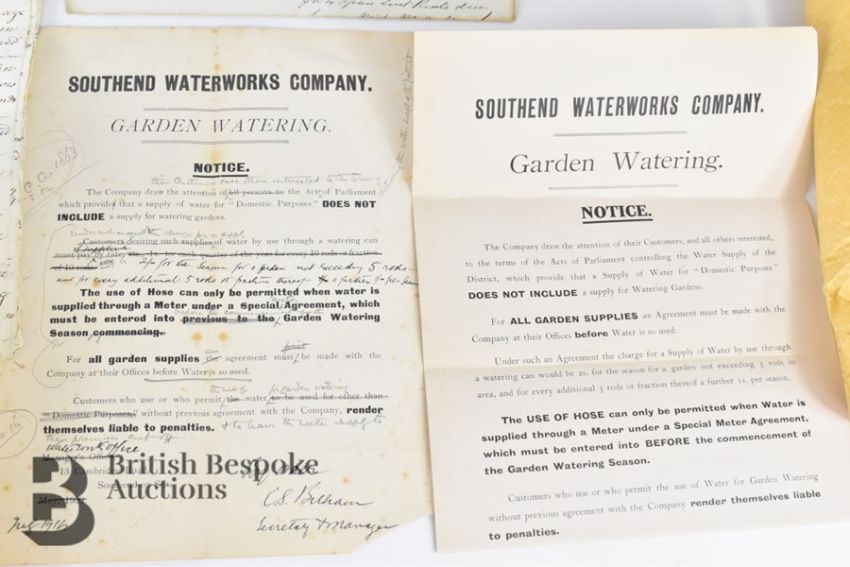 SOUTHEND WATERWORKS COMPANY.
GARDEN WATERING.
NOTICE.
The Company draw the attention of all persons to the Act of Parliament
which provide that a supply of water for "Domestic Purposes" DOES NOT
INCLUDE a supply for watering gardens.
Customers desiring such supplies of water by use through a watering can
must pay by rate, viz. 1s. for each quarter of the year for every 10 rods or fraction
of 10 rods 2/- for the season for a garden not exceeding 5 rods
and for every additional 5 rods or fraction thereof a further
The use of Hose can only be permitted when water is
supplied through a Meter under a Special Agreement, which
must be entered into previous to the Garden Watering
Season commencing.
For all garden supplies an agreement must be made with the
Company at their Offices before Water is so used.
Customers who use or who permit the water to be used for other than
"Domestic Purposes," without previous agreement with the Company, render
themselves liable to penalties. & to have the water supply to
their premises cut off
Waterworks Office
Manager's Office
13
C.S. Bilham
Secretary & Manager
1916
SOUTHEND WATERWORKS COMPANY.
Garden Watering.
NOTICE.
The Company draw the attention of their Customers, and all others interested,
to the terms of the Acts of Parliament controlling the Water Supply of the
District, which provide that a Supply of Water for "Domestic Purposes"
DOES NOT INCLUDE a supply for Watering Gardens.
For ALL GARDEN SUPPLIES an Agreement must be made with the
Company at their Offices before Water is so used.
Under such an Agreement the charge for a Supply of Water by use through
a watering can would be 2s. for the season for a garden not exceeding 5 rods in
area, and for every additional 5 rods or fraction thereof a further 1s. per season.
The USE OF HOSE can only be permitted when Water is
supplied through a Meter under a Special Meter Agreement,
which must be entered into BEFORE the commencement of
the Garden Watering Season.
Customers who use or who permit the use of Water for Garden Watering
without previous agreement with the Company render themselves liable
to penalties.
British Bespoke
Auctions